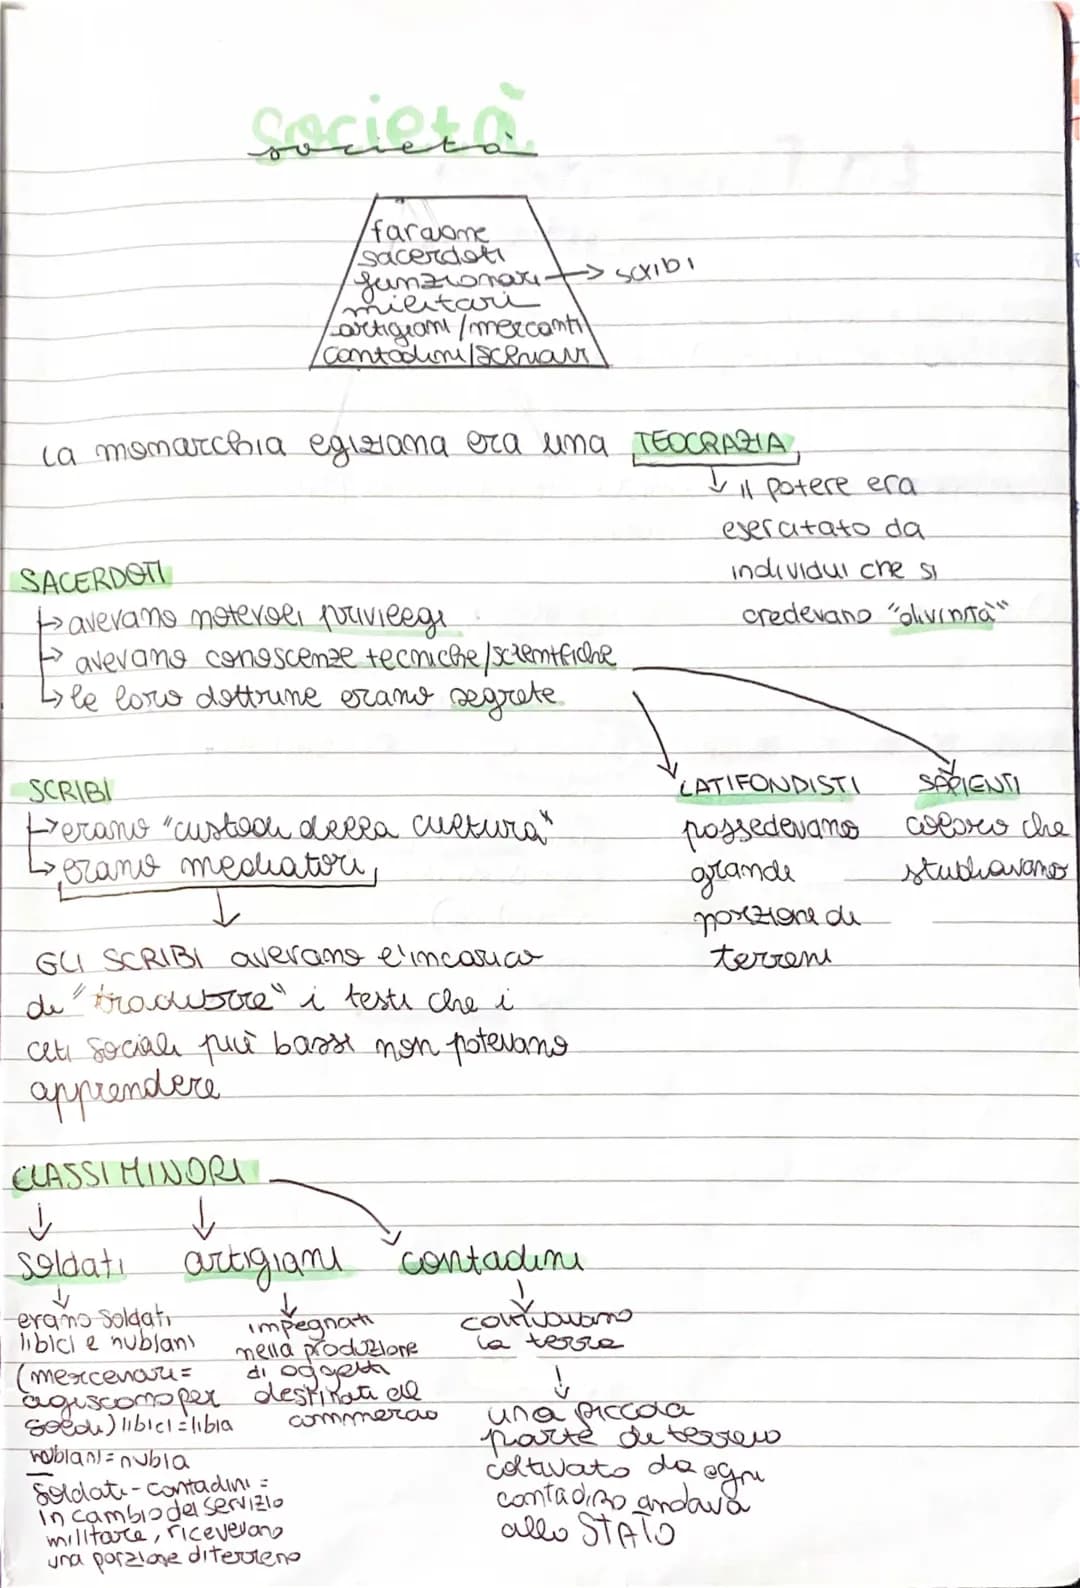 società
società
faraone
sacerdoti
funzionari → scribi
militari
artigiani/mercanti
contadini/schiavi
La monarchia egiziana era una TEOCRAZIA,
↓ il potere era
esercitato da
individui che si
credevano "divinità"
SACERDOTI
↳ avevano notevoli privilegi
↳ avevano conoscenze tecniche/scientifiche
↳ le loro dottrine erano segrete
LATIFONDISTI
possedevano
grande
porzione di
terreni
SAPIENTI
coloro che
studiavano
SCRIBI
↳ erano "custodi della cultura"
↳ erano mediatori,
↓
GLI SCRIBI avevano l'incarico
di "tradurre" i testi che i
ceti sociali più bassi non potevano
apprendere
CLASSI MINORI
soldati
erano soldati
libici e nubiani
(mercenari=
agiscono per
soldi) libici=libia
nubiani=nubia
soldati-contadini=
in cambio del servizio
militare, ricevevano
una porzione di terreno
artigiani
impegnati
nella produzione
di oggetti
destinati al
commercio
contadini
coltivavano
la terra
↓
una piccola
parte di terreno
coltivato da ogni
contadino andava
allo STATO